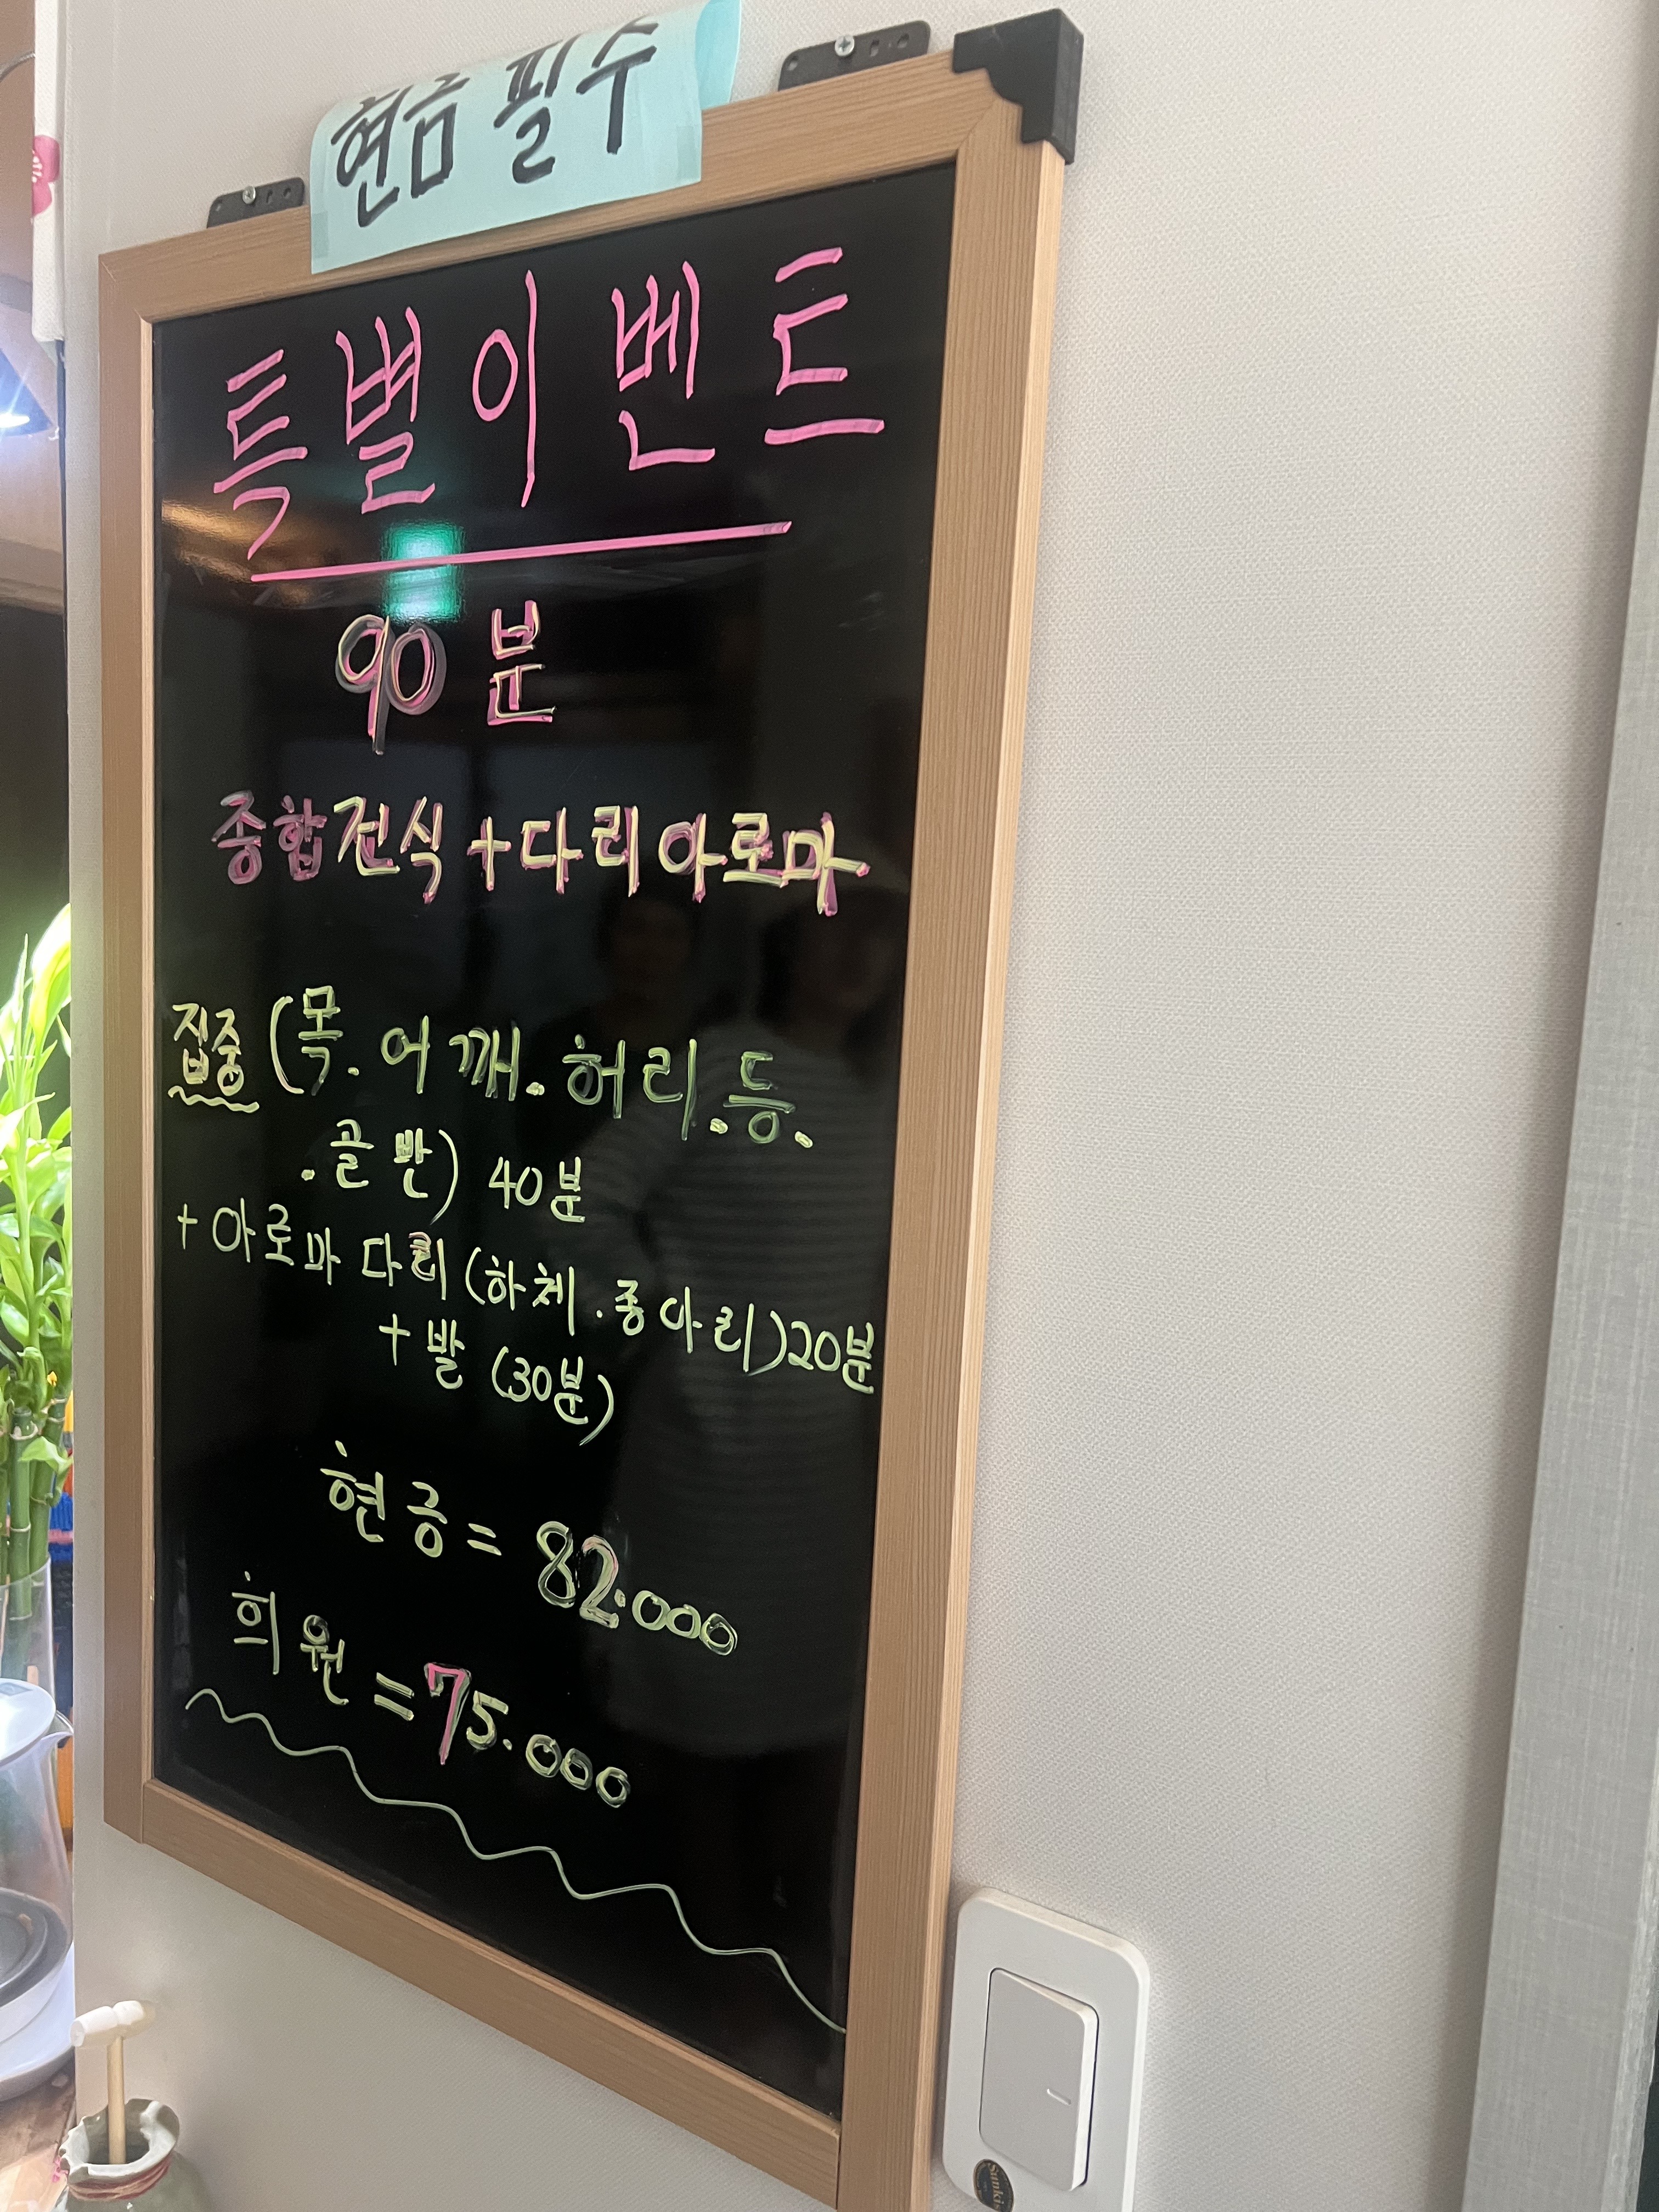 현금 필수
특별이벤트
90 분
종합건식+다리아로마
집중 (목.어깨.허리.등.
.골반) 40분
+ 아로마 다리 (하체.종아리)20분
+ 발 (30분)
현금= 82.000
희원 =75.000